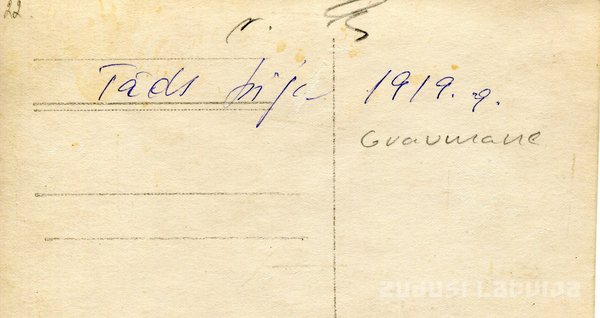 22
Tāds bija 1919. g.
Graumane
ZUDUSI LATVIJA